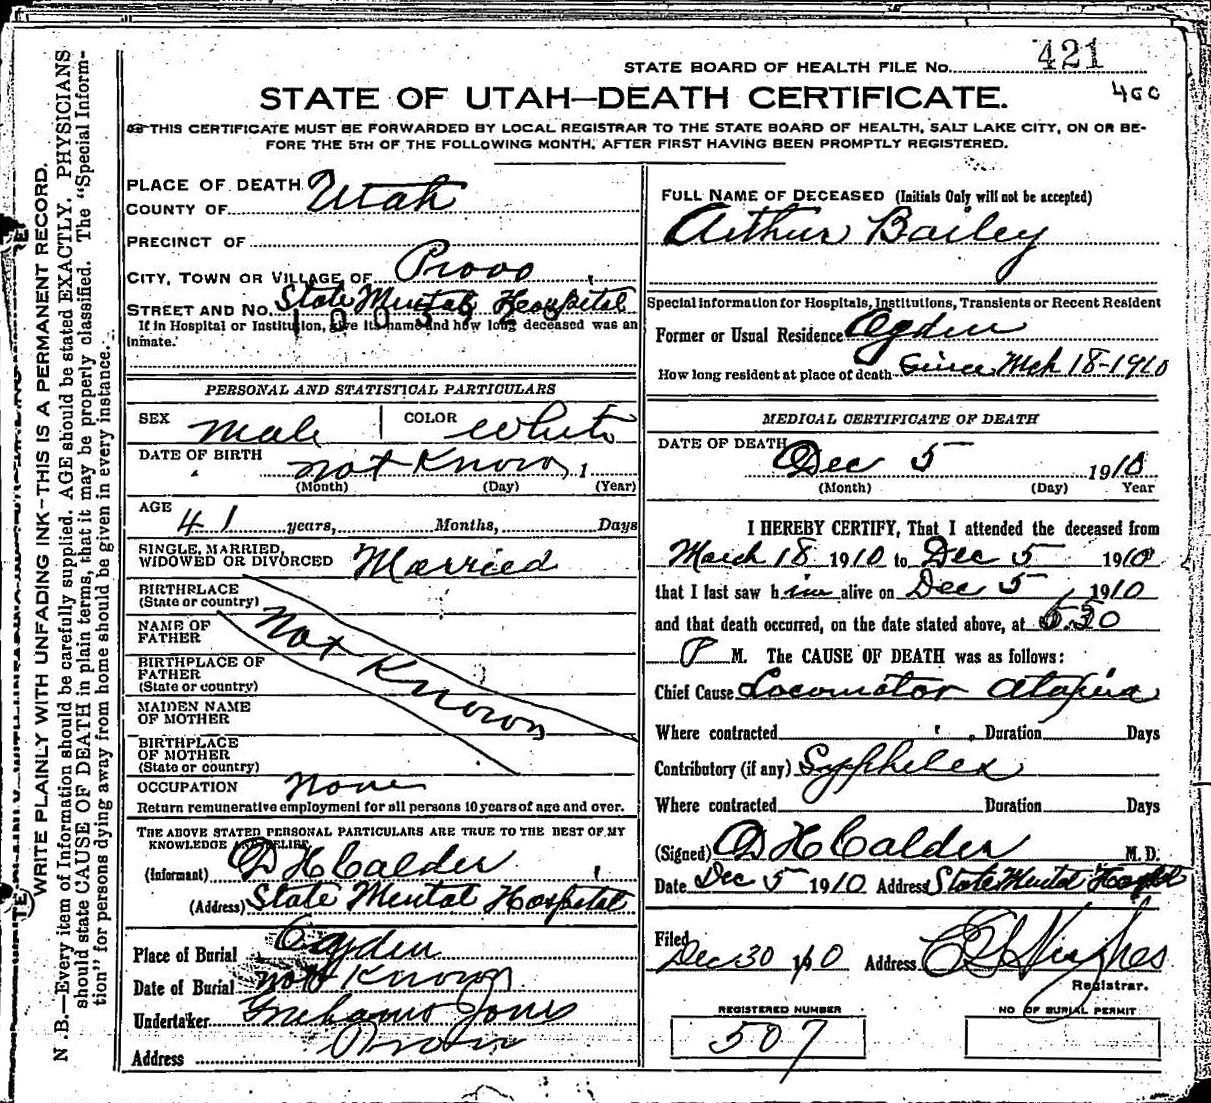 421
STATE BOARD OF HEALTH FILE No.
STATE OF UTAH—DEATH CERTIFICATE.
460
THIS CERTIFICATE MUST BE FORWARDED BY LOCAL REGISTRAR TO THE STATE BOARD OF HEALTH, SALT LAKE CITY, ON OR BE-
FORE THE 5TH OF THE FOLLOWING MONTH, AFTER FIRST HAVING BEEN PROMPTLY REGISTERED.
WRITE PLAINLY WITH UNFADING INK—THIS IS A PERMANENT RECORD.
N. B.—Every item of Information should be carefully supplied. AGE should be stated EXACTLY. PHYSICIANS
should state CAUSE OF DEATH in plain terms, that it may be properly classified. The "Special Inform-
tion" for persons dying away from home should be given in every instance.
PLACE OF DEATH
COUNTY OF Utah
PRECINCT OF
CITY, TOWN OR VILLAGE OF Provo
STREET AND No. State Mental Hospital
If in Hospital or Institution, give its name and how long deceased was an
inmate.
PERSONAL AND STATISTICAL PARTICULARS
SEX Male COLOR White
DATE OF BIRTH not Known 1
(Month) (Day) (Year)
AGE 41 years, Months, Days
SINGLE, MARRIED,
WIDOWED OR DIVORCED Married
BIRTHPLACE
(State or country)
NAME OF
FATHER
BIRTHPLACE OF
FATHER
(State or country)
Not Known
MAIDEN NAME
OF MOTHER
BIRTHPLACE
OF MOTHER
(State or country)
OCCUPATION None
Return remunerative employment for all persons 10 years of age and over.
THE ABOVE STATED PERSONAL PARTICULARS ARE TRUE TO THE BEST OF MY
KNOWLEDGE AND BELIEF
(Informant) D H Calder
(Address) State Mental Hospital
Place of Burial Ogden
Date of Burial not Known
Undertaker Jones
Address Provo
FULL NAME OF DECEASED (Initials Only will not be accepted)
Arthur Bailey
Special Information for Hospitals, Institutions, Transients or Recent Resident
Former or Usual Residence Ogden
How long resident at place of death Since Mch 18-1910
MEDICAL CERTIFICATE OF DEATH
DATE OF DEATH Dec 5 1910
(Month) (Day) Year
I HEREBY CERTIFY, That I attended the deceased from
March 18 1910 to Dec 5 1910
that I last saw him alive on Dec 5 1910
and that death occurred, on the date stated above, at 5.30
P M. The CAUSE OF DEATH was as follows:
Chief Cause Locomotor Ataxia
Where contracted Duration Days
Contributory (if any) Sypheles
Where contracted Duration Days
(Signed) D H Calder M. D.
Date Dec 5 1910 Address State Mental Hospital
Filed
Dec 30 1910 Address Hughes
Registrar.
REGISTERED NUMBER
507
NO OF BURIAL PERMIT